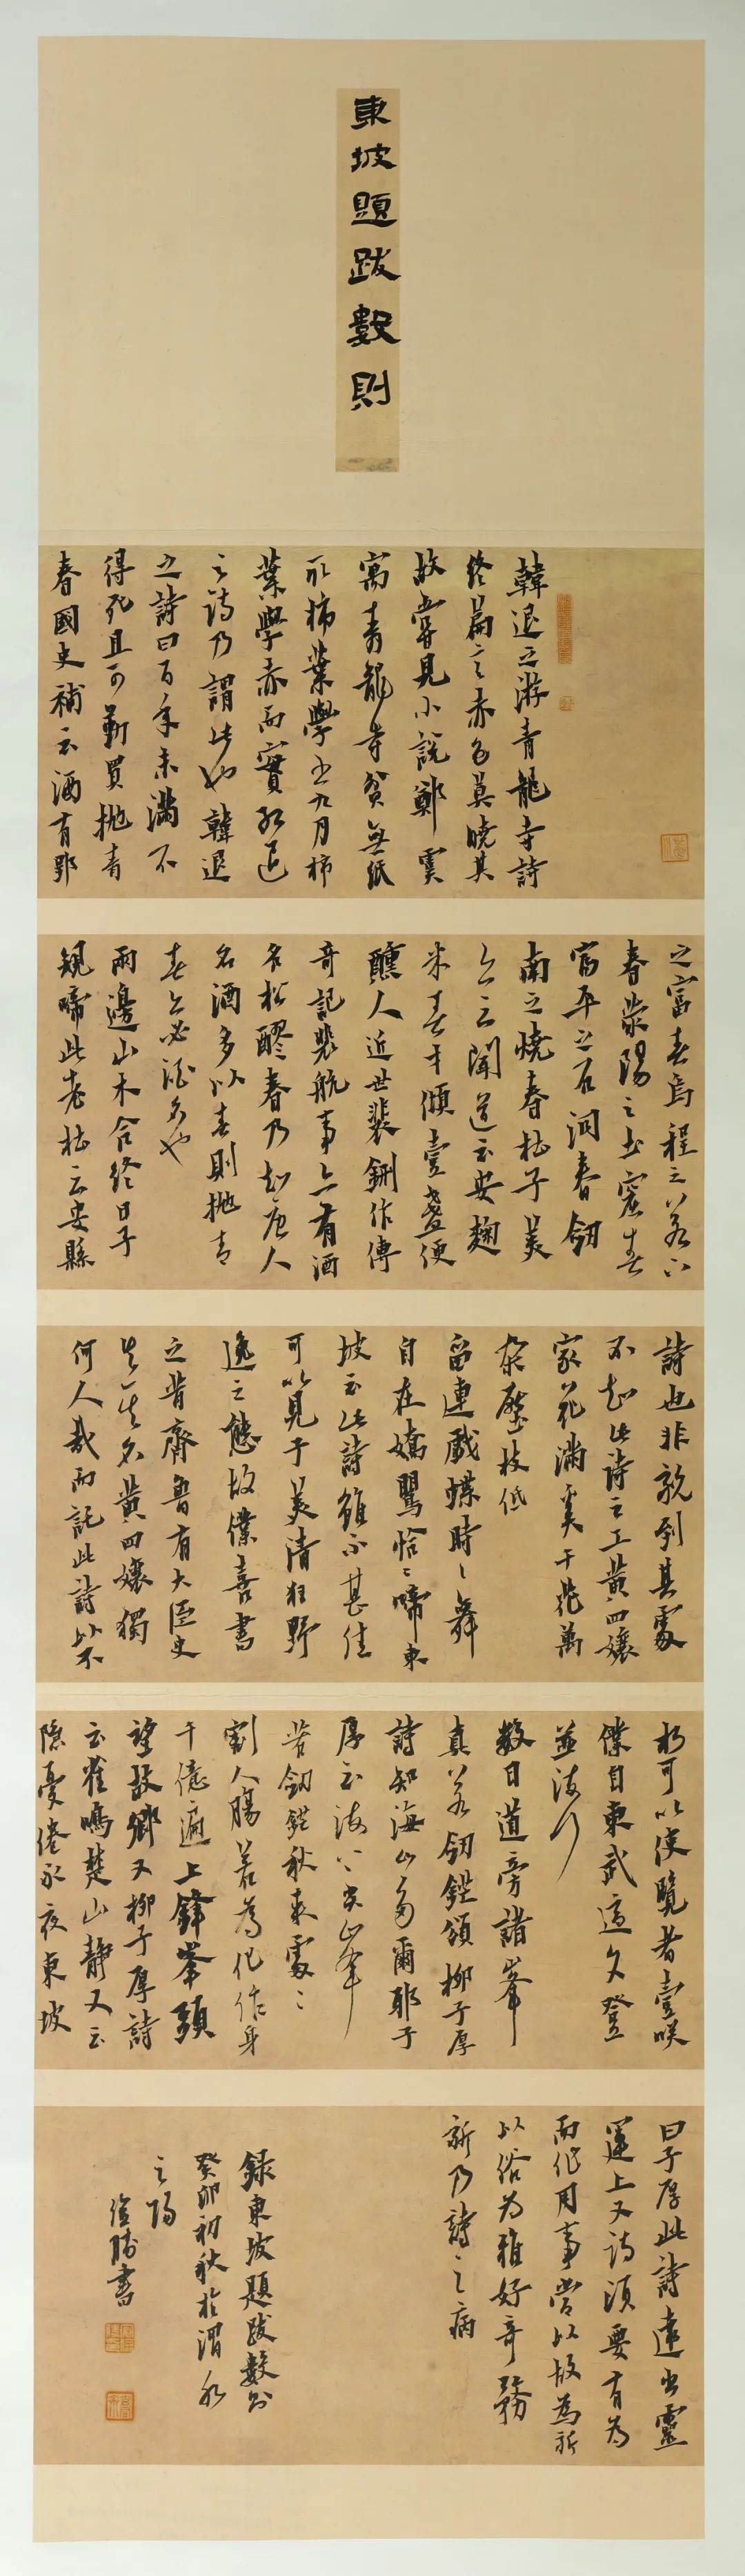 東坡題跋數則
韓退之游青龍寺詩
終篇言赤色莫曉其
故嘗見小說鄭虔
寓青龍寺貧無紙
取柿葉學書九月柿
葉學赤而實紅退
之詩乃謂此也韓退
之詩曰百年未滿不
得死且可勤買抛青
春國史補云酒有郢
之富春烏程之若下
春滎陽之土窟春
富平之石洞春劒
南之燒春杜子美
亦云聞道云安麹
米春才傾壹盞便
醺人近世裴鉶作傳
奇記裴航事亦有酒
名松醪春乃知唐人
名酒多以春則抛青
春亦必酒名也
兩邊山木合終日子
規啼此老杜云安縣
詩也非親到其處
不知此詩之工黄四孃
家花滿蹊千花萬
朶壓枝低
留連戲蝶時〻舞
自在嬌鶯恰〻啼東
坡云此詩雖不甚佳
可以見子美清狂野
逸之態故僕喜書
之昔齊魯有大臣史
失其名黄四孃獨
何人哉而託此詩以不
朽可以使覽者壹咲
僕自東武適文登
並海行
數日道旁諸峯
真若劒鋩頌柳子厚
詩知海山多爾耶子
厚云海上尖山峯
若劒鋩秋来處〻
割人膓若為化作身
千億遍上鋒峯頭
望故鄉又柳子厚詩
云雀鳴楚山静又云
隱憂倦永夜東坡
曰子厚此詩遠出靈
運上又詩須要有為
而作用事當以故為新
以俗為雅好奇務
新乃詩之病
録東坡題跋數則
癸卯初秋於渭水
之陽
書